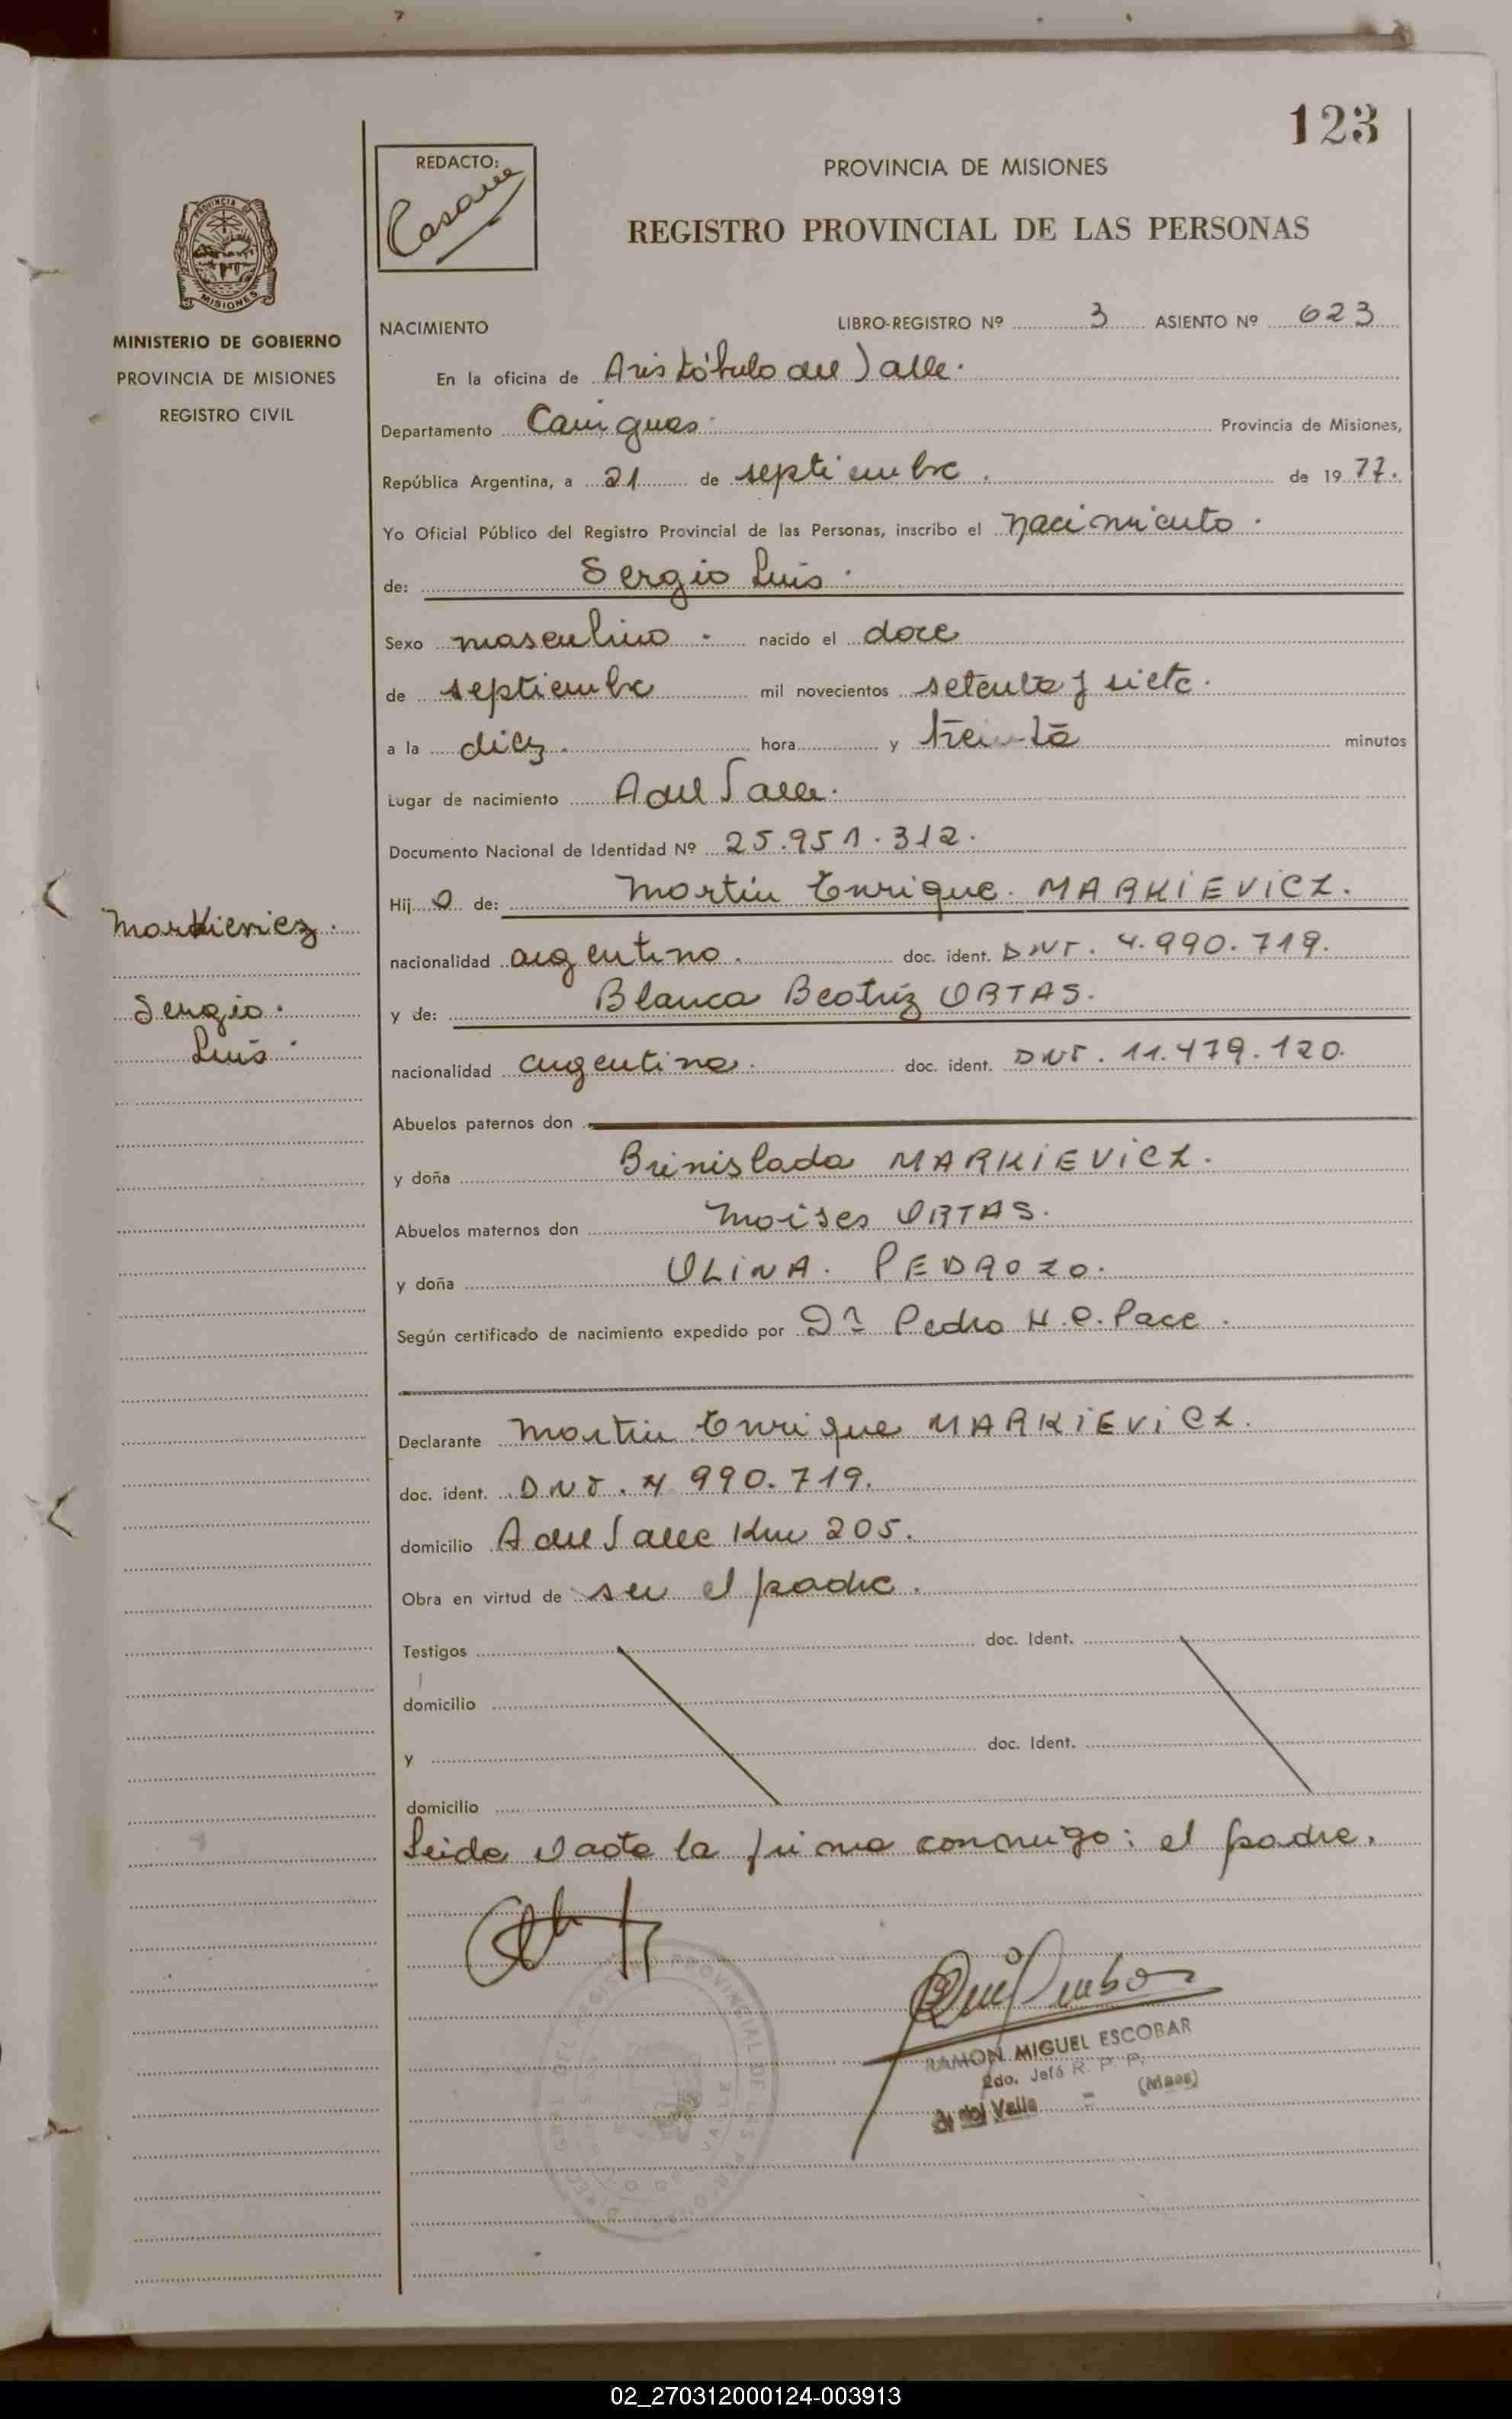 123
REDACTO:
PROVINCIA DE MISIONES
REGISTRO PROVINCIAL DE LAS PERSONAS
PROVINCIA
MISIONES
MINISTERIO DE GOBIERNO
PROVINCIA DE MISIONES
REGISTRO CIVIL
NACIMIENTO LIBRO-REGISTRO Nº 3 ASIENTO Nº 623
En la oficina de Aristóbulo del Valle.
Departamento Cainguas. Provincia de Misiones,
República Argentina, a 21 de septiembre. de 1977.
Yo Oficial Público del Registro Provincial de las Personas, inscribo el nacimiento.
de: Sergio Luis.
Sexo masculino. nacido el doce
de septiembre mil novecientos setenta y siete.
a la diez. hora y treinta minutos
Lugar de nacimiento A del Valle.
Documento Nacional de Identidad Nº 25.951.312.
Hijo de: Martin Enrique. MARKIEVICZ.
Markievicz.
nacionalidad argentino. doc. ident. DNI. 4.990.719.
Sergio.
y de: Blanca Beatriz ORTAS.
Luis.
nacionalidad argentina. doc. ident. DNI. 11.479.120.
Abuelos paternos don
y doña Brinislada MARKIEVICZ.
Abuelos maternos don Moises ORTAS.
y doña OLINA. PEDROZO.
Según certificado de nacimiento expedido por Dr Pedro H.P. Pace.
Declarante Martin Enrique MARKIEVICZ.
doc. ident. DNI. 4.990.719.
domicilio A del Valle Km 205.
Obra en virtud de ser el padre.
Testigos doc. Ident.
domicilio
y doc. Ident.
domicilio
Leida el acta la firma conmigo: el padre.
RAMON MIGUEL ESCOBAR
2do. Jefe R. P. P.
A. del Valle = (Mnes)
02_270312000124-003913